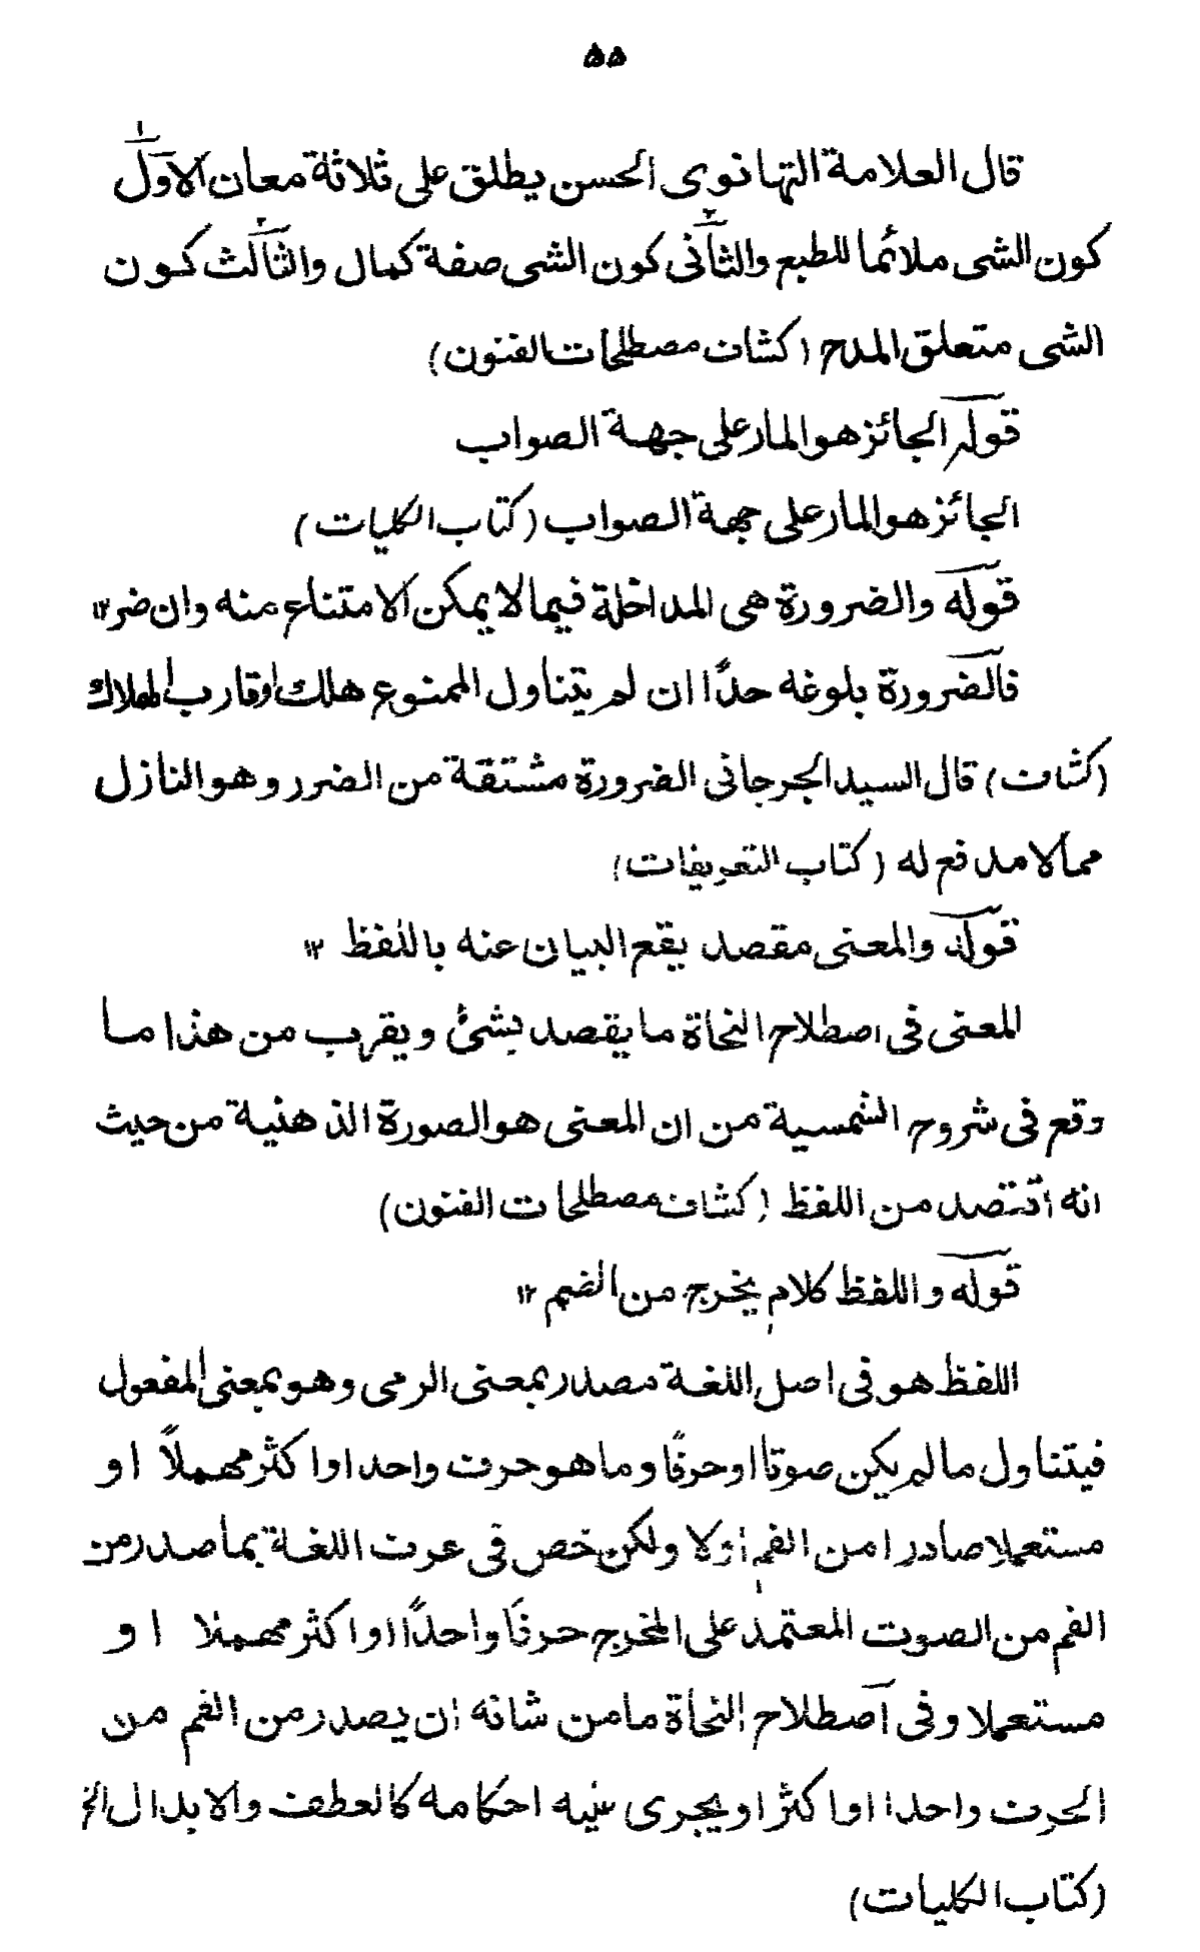 ۵۵
قال العلامة التهانوى الحسن يطلق على ثلاثة معان الاول
كون الشى ملائما للطبع والثانى كون الشى صفة كمال والثالث كون
الشى متعلق المدح (كشاف مصطلحات الفنون)
قوله الجائز هو المار على جهة الصواب
الجائز هو المار على جهة الصواب (كتاب الكليات)
قوله والضرورة هى المداخلة فيما لا يمكن الامتناع منه وان ضر ١٢
فالضرورة بلوغه حدًا ان لم يتناول الممنوع هلك او قارب الهلاك
(كشاف) قال السيد الجرجانى الضرورة مشتقة من الضرر وهو النازل
مما لا مدفع له (كتاب التعريفات)
قوله والمعنى مقصد يقع البيان عنه باللفظ ١٢
المعنى فى اصطلاح النحاة ما يقصد بشئ ويقرب من هذا ما
وقع فى شروح الشمسية من ان المعنى هو الصورة الذهنية من حيث
انه تقصد من اللفظ (كشاف مصطلحات الفنون)
قوله و اللفظ كلام يخرج من الفم ١٢
اللفظ هو فى اصل اللغة مصدر بمعنى الرمى وهو بمعنى المفعول
فيتناول ما لم يكن صوتا او حرفًا وما هو حرف واحد او اكثر مهملاً او
مستعملا صادرا من الفم اولا ولكن خص فى عرف اللغة بما صدر من
الفم من الصوت المعتمد على المخرج حرفًا واحدًا او اكثر مهملا او
مستعملا وفى اصطلاح النحاة ما من شانه ان يصدر من الفم من
الحرف واحدا او اكثر او يجرى عليه احكامه كالعطف والابدال الخ
(كتاب الكليات)